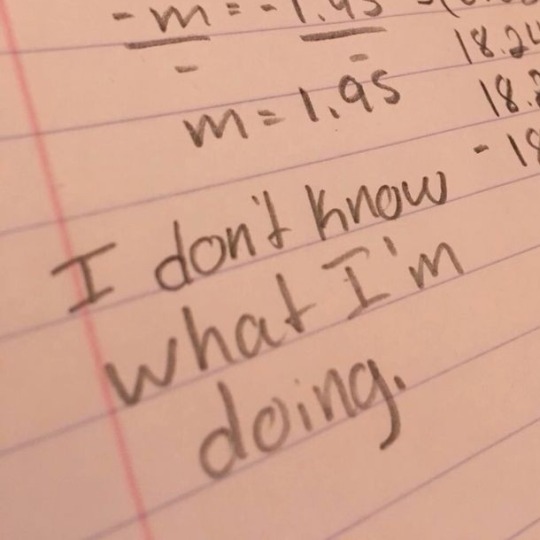 -m = -1.95
- -
m = 1.95
18.24
18.
- 18
I don't know
what I'm
doing.